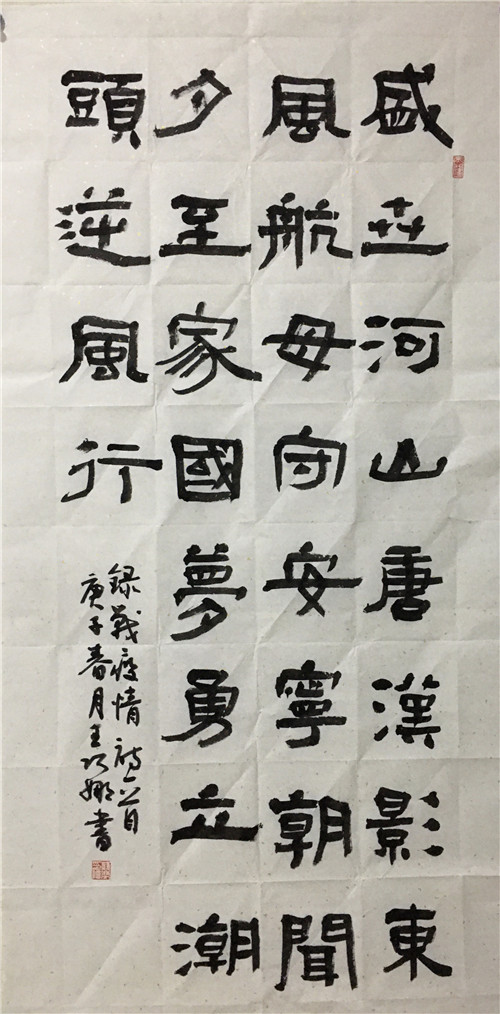 盛世河山唐漢影東
風航母守安寧朝聞
夕至家國夢勇立潮
頭逆風行
錄戰疫情詩一首
庚子春月王巧娜書